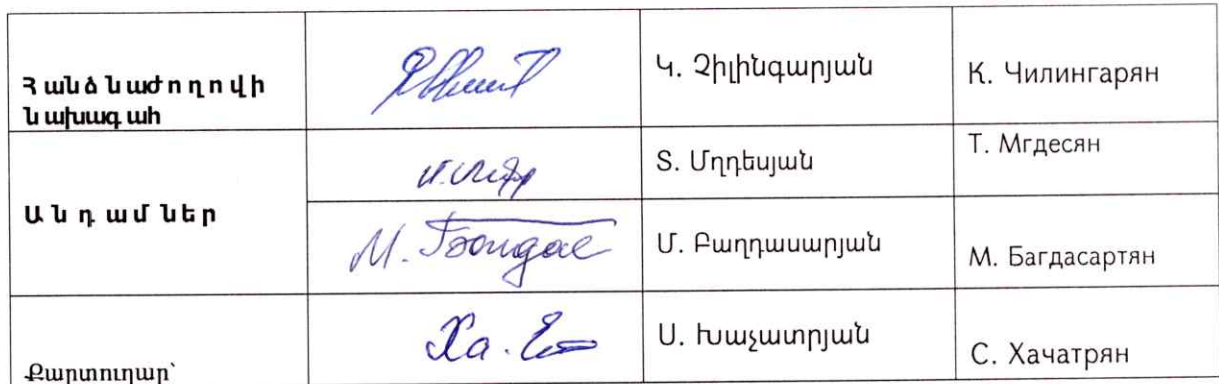 Հանձնաժողովի
նախագահ
Կ. Չիլինգարյան
К. Чилингарян
Անդամներ
Տ. Մղդեսյան
Т. Мгдесян
М. Багдас
Մ. Բաղդասարյան
М. Багдасартян
Քարտուղար՝
Ս. Խաչատրյան
С. Хачатрян